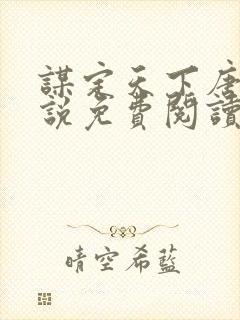 謀定天下唐
說免費閱讀
晴空希藍